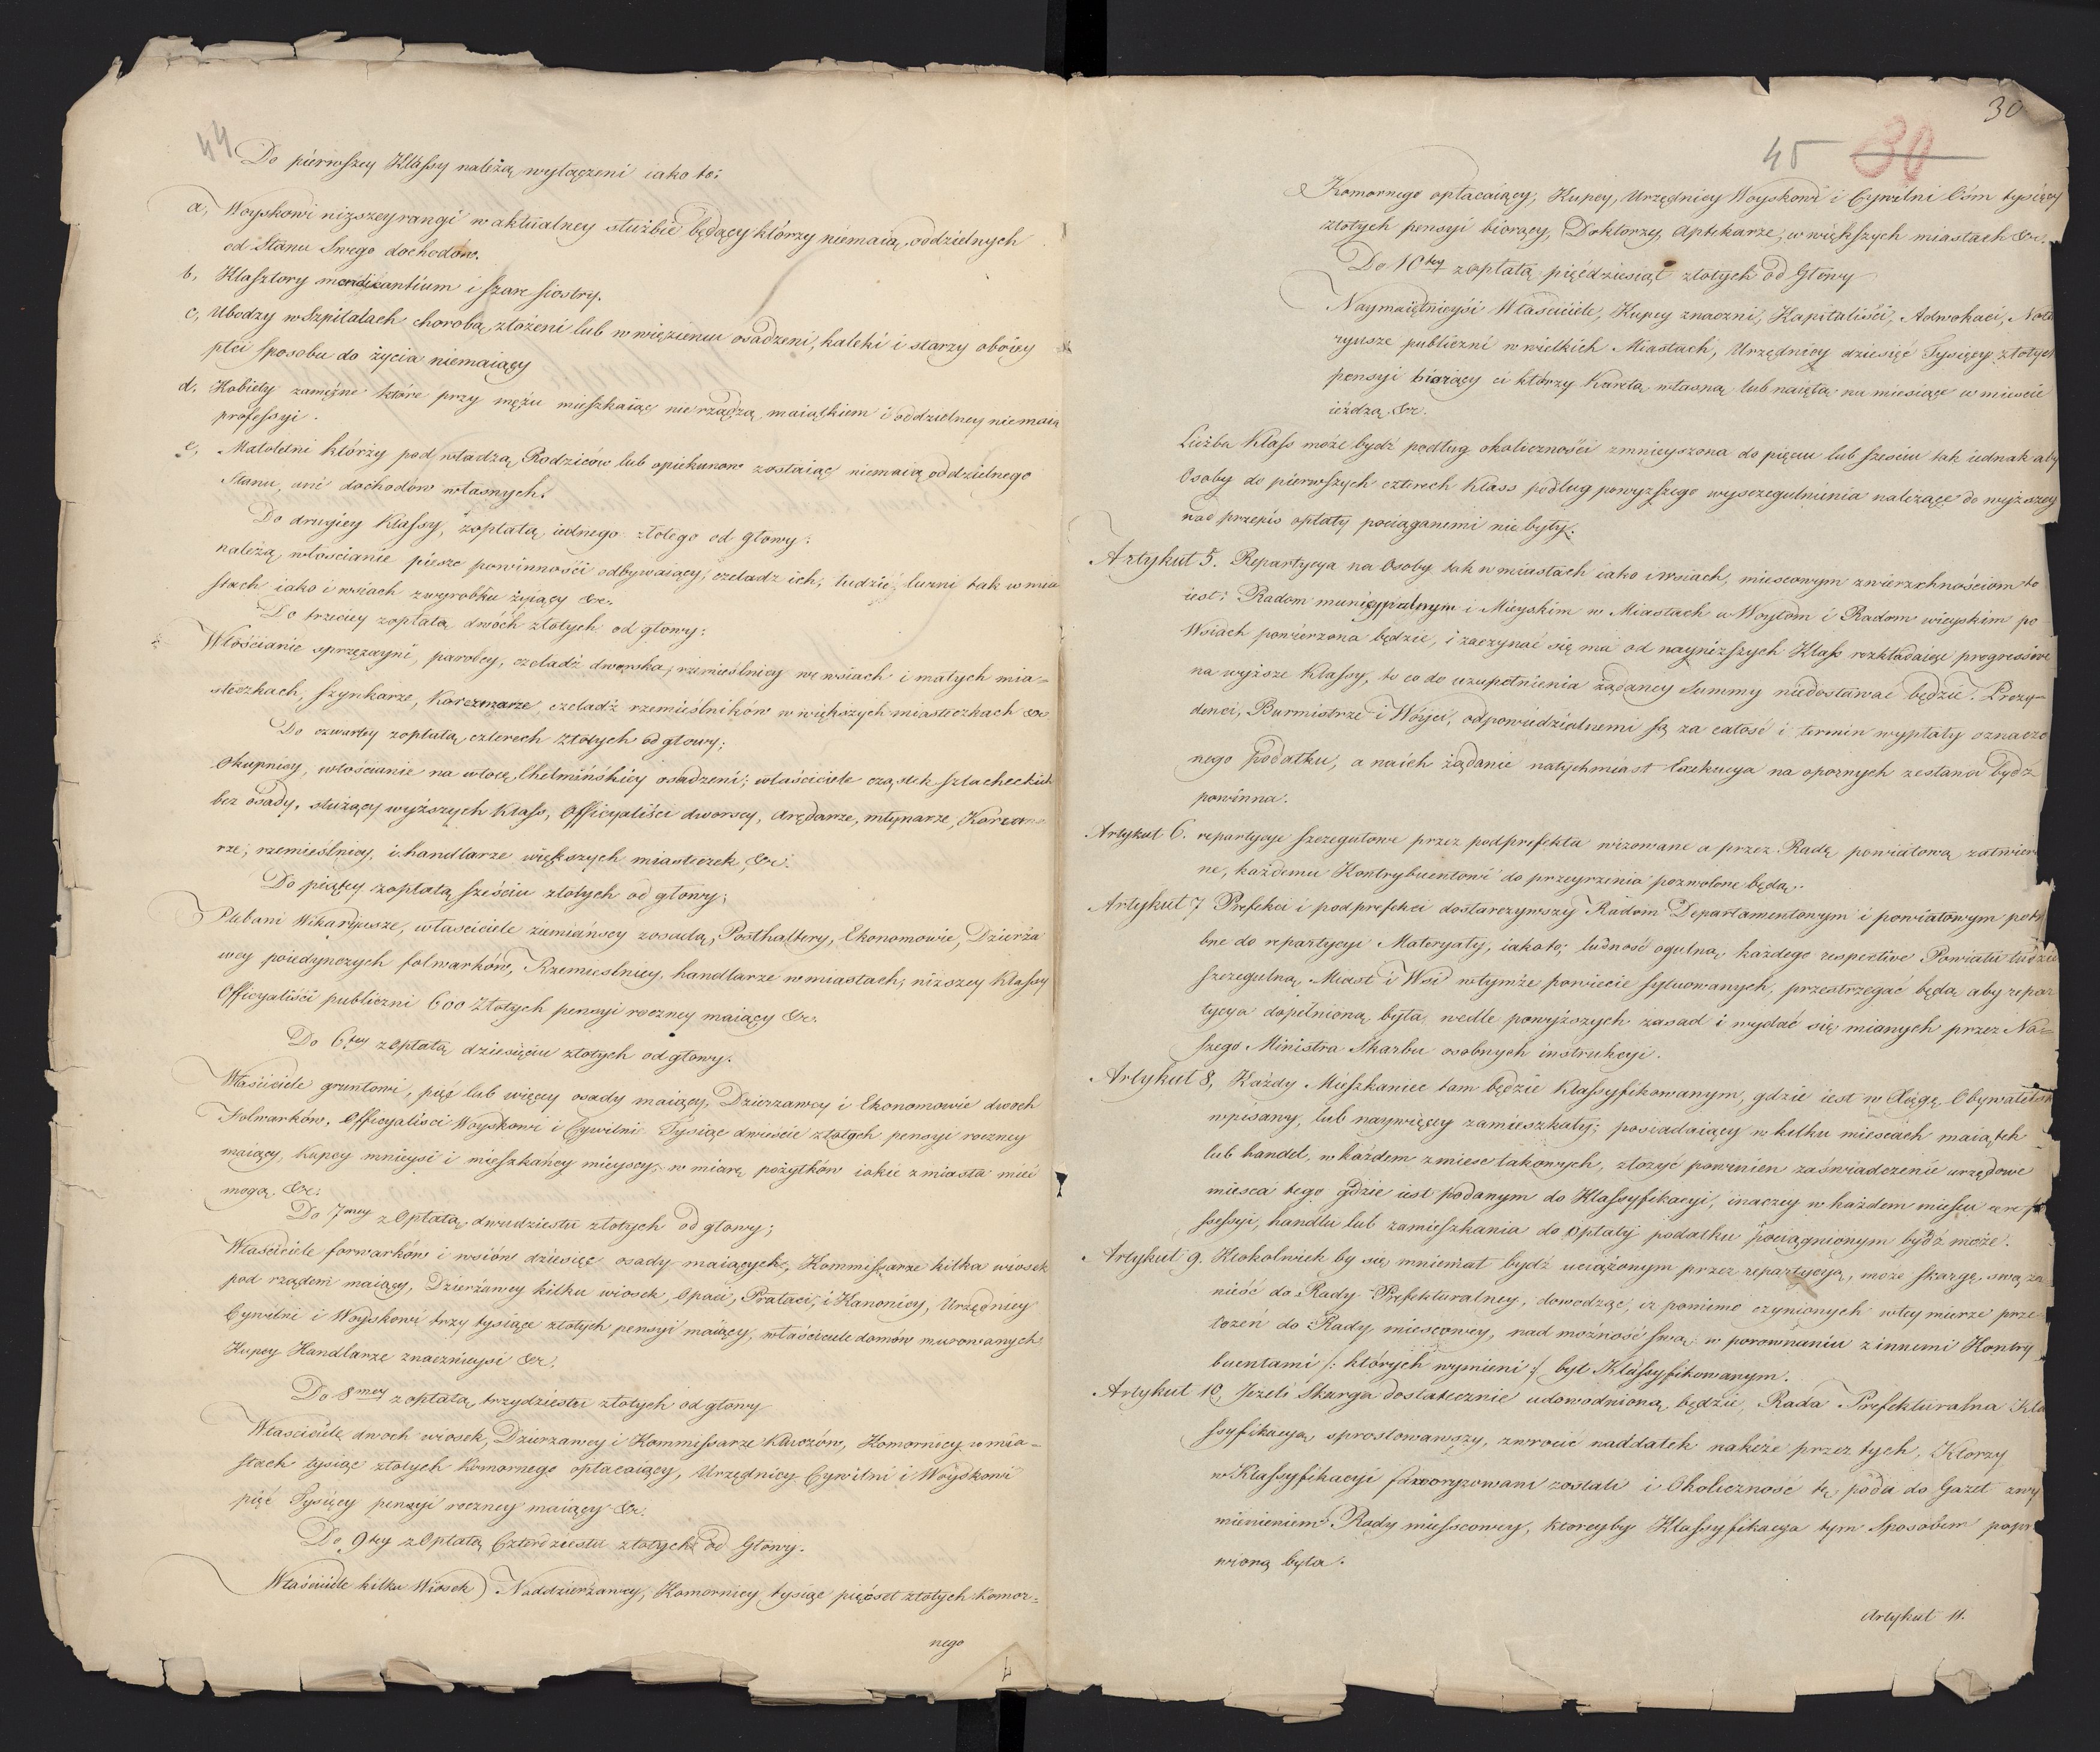 44
Do pierwszey Klassy należą wyłączeni iako to:
a, Woyskowi niższey rangi w aktualney służbie będący którzy niemaią, oddzielnych
od Stanu Swego dochodów.
b, Klasztory mendicantium i szare siostry.
c, Ubodzy w Szpitalach chorobą złożeni lub w więzieniu osadzeni, kaleki i starzy oboiey
płci sposobu do życia niemaiący
d, Kobiety zamężne które przy mężu mieszkaiąc nie rządzą maiątkiem i oddzielney niemaią
professyi.
e, Małoletni którzy pod władzą Rodziców lub opiekunow zostaiąc niemaią oddzielnego
Stanu, ani dochodów własnych.
Do drugiey Klassy, zopłatą iednego złotego od głowy:
należą włościanie piesze powinności odbywaiący, czeladz ich, ludzie luzni tak w mia
stach iako i wsiach z wyrobku żyiący &c.
Do trzeciey zopłatą dwóch złotych od głowy:
Włościanie sprzężayni, parobcy, czeladź dworska, rzemieślnicy we wsiach i małych mia=
steczkach, szynkarze, Karczmarze, czeladź rzemieślników w większych miasteczkach &c
Do czwartey zopłatą czterech złotych od głowy;
Okupnicy, włościanie na włocę Chełmińskiey osadzeni; właściciele cząstek szlacheckich
bez osady, służący wyższych Klass, Officyaliści dworscy, Arędarze, młynarze, Karczma
rze, rzemieślnicy, i handlarze większych miasteczek &c.
Do piątey zopłatą sześciu złotych od głowy;
Plebani Wikaryusze, właściciele ziemiańscy zosadą, Posthaltery, Ekonomowie, Dzierża
wcy poiedynczych folwarków, Rzemieslnicy, handlarze w miastach, niższey Klassy
Officyaliści publiczni 600 Złotych pensyi roczney maiący &c.
Do 6tey z Opłatą dziesięciu złotych od głowy.
Właściciele gruntowi, pięć lub więcey osady maiący, Dzierzawcy i Ekonomowie dwoch
Folwarków, Officyaliści Woyskowi i Cywilni Tysiąc dwieście złotych pensyi roczney
maiący, Kupcy mnieysi i mieszkańcy mieyscy, w miarę pożytków iakie z miasta mieć
mogą, &c:
Do 7mey z Opłatą dwudziestu złotych od głowy;
Właściciele forwarków i wsiów dziesięć osady maiących, Kommissarze kilka wiosek
pod rządem maiący, Dzierżawcy kilku wiosek, Opaci, Prałaci, i Kanonicy, Urzędnicy
Cywilni i Woyskowi trzy tysiące złotych pensyi maiący, właściciele domów murowanych,
Kupcy Handlarze znacznieysi &c.
Do 8mey zopłatą trzydziestu złotych od głowy
Właściciele dwoch wiosek, Dzierzawcy i Kommissarze Kluczów, Komornicy w mia=
stach tysiąc złotych Komornego opłacaiący, Urzędnicy Cywilni i Woyskowi
pięć Tysięcy pensyi roczney maiący &c.
Do 9tey z Opłatą Czterdziestu złotych od Głowy.
Właściciele kilku Wiosek, Naddzierżawcy, Komornicy tysiąc pięćset złotych Komor=
nego
30
45 30
Komornego opłacaiący, Kupcy, Urzędnicy Woyskowi i Cywilni Ośm tysięcy
złotych pensyi biorący, Doktorzy, Aptekarze, w większych miastach &c.
Do 10tey zopłatą pięćdziesiąt złotych od Głowy
Naymaiętnieysi Właściciele, Kupcy znaczni, Kapitaliści, Adwokaci, Nota
ryusze publiczni w wielkich Miastach, Urzędnicy dziesięć Tysięcy złotych
pensyi biorący ci którzy Karetą własną lub naiętą na miesiące w mieście
ieżdzą &c.
Liczba Klass może bydź podług okoliczności zmnieyszona do pięciu lub sześciu tak iednak aby
Osoby do pierwszych czterech Klass podług powyższego wyszczegulnienia należące do wyższey
nad przepis opłaty pociąganemi nie były.
Artykuł 5. Repartycya na Osoby tak w miastach iako i wsiach, miescowym zwierzchnościom to
iest: Radom municypalnym i Mieyskim w Miastach a Woytom i Radom wieyskim po
Wsiach powierzona będzie, i zaczynać się ma od nayniższych Klass rozkładaiąc progressive
na wyższe Klassy, to co do uzupełnienia żądaney Summy niedostawać będzie. Prezy=
denci, Burmistrze i Wóyci, odpowiedzialnemi są za całość i termin wypłaty oznaczo
nego podatku, a na ich żądanie natychmiast Exekucya na opornych zesłana bydź
powinna.
Artykuł 6. repartycye szczegulowe przez podprefekta wizowane a przez Radę powiatową zatwierdzo
ne, każdemu Kontrybuentowi do przeyrzenia pozwolone będą.
Artykuł 7 Prefekci i podprefekci dostarczywszy Radom Departamentowym i powiatowym potrze
bne do repartycyi Materyały, iako to; ludność ogulną każdego respective Powiatu tudzież
szczegulną Miast i Wsi w tymże powiecie sytuowanych, przestrzegać będą aby repar
tycya dopełnioną była, wedle powyższych zasad i wydać się mianych przez Na=
szego Ministra Skarbu osobnych instrukcyi.
Artykuł 8, Każdy Mieszkaniec tam będzie Klassyfikowanym, gdzie iest w Xięgę Obywatelską
wpisany, lub naywięcey zamieszkały; posiadaiący w kilku miescach maiątek
lub handel, w każdem z miesc takowych, złożyć powinien zaświadczenie urzędowe
miesca tego gdzie iest podanym do Klassyfikacyi, inaczey w każdem miescu
ssessyi, handlu lub zamieszkania do Opłaty podatku pociągnionym bydź może.
Artykuł 9. Ktokolwiek by się mniemał bydź uciążonym przez repartycyą, może skargę swą za
nieść do Rady Prefekturalney, dowodząc, iż pomimo czynionych w tey mierze prze
łożeń do Rady miescowey, nad możność swą w porownaniu z innemi Kontry
buentami /: których wymieni :/ był Klassyfikowanym.
Artykuł 10, Jeżeli Skarga dostatecznie udowodnioną będzie, Rada Prefekturalna Kla
ssyfikacyą sprostowawszy, zwrocić naddatek nakaże przez tych, Ktorzy
w Klassyfikacyi faworyzowani zostali i Okoliczność tę poda do Gazet z wy
mienieniem Rady miescowey, ktoreyby Klassyfikacya tym Sposobem popra
wioną była.
Artykuł 11.